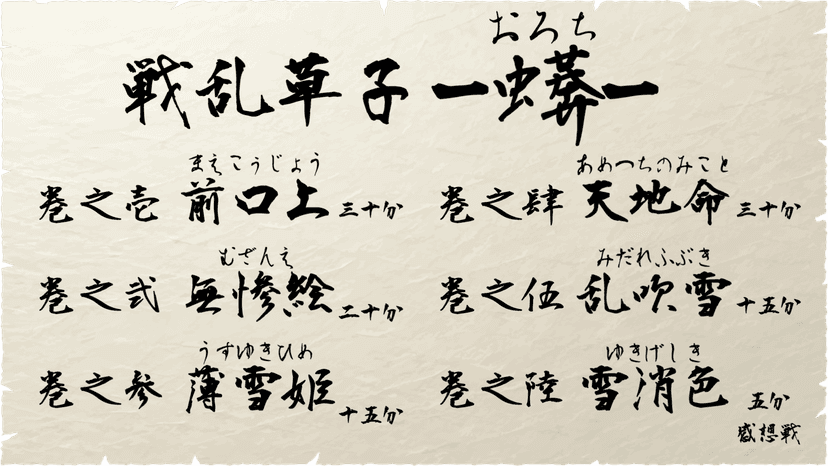 おろち
戦乱草子 ー蟒ー
まえこうじょう
巻之壱 前口上 三十分
むざんえ
巻之弐 無惨絵 二十分
うすゆきひめ
巻之参 薄雪姫 十五分
あめつちのみこと
巻之肆 天地命 三十分
みだれふぶき
巻之伍 乱吹雪 十五分
ゆきげしき
巻之陸 雪消色 五分
感想戦